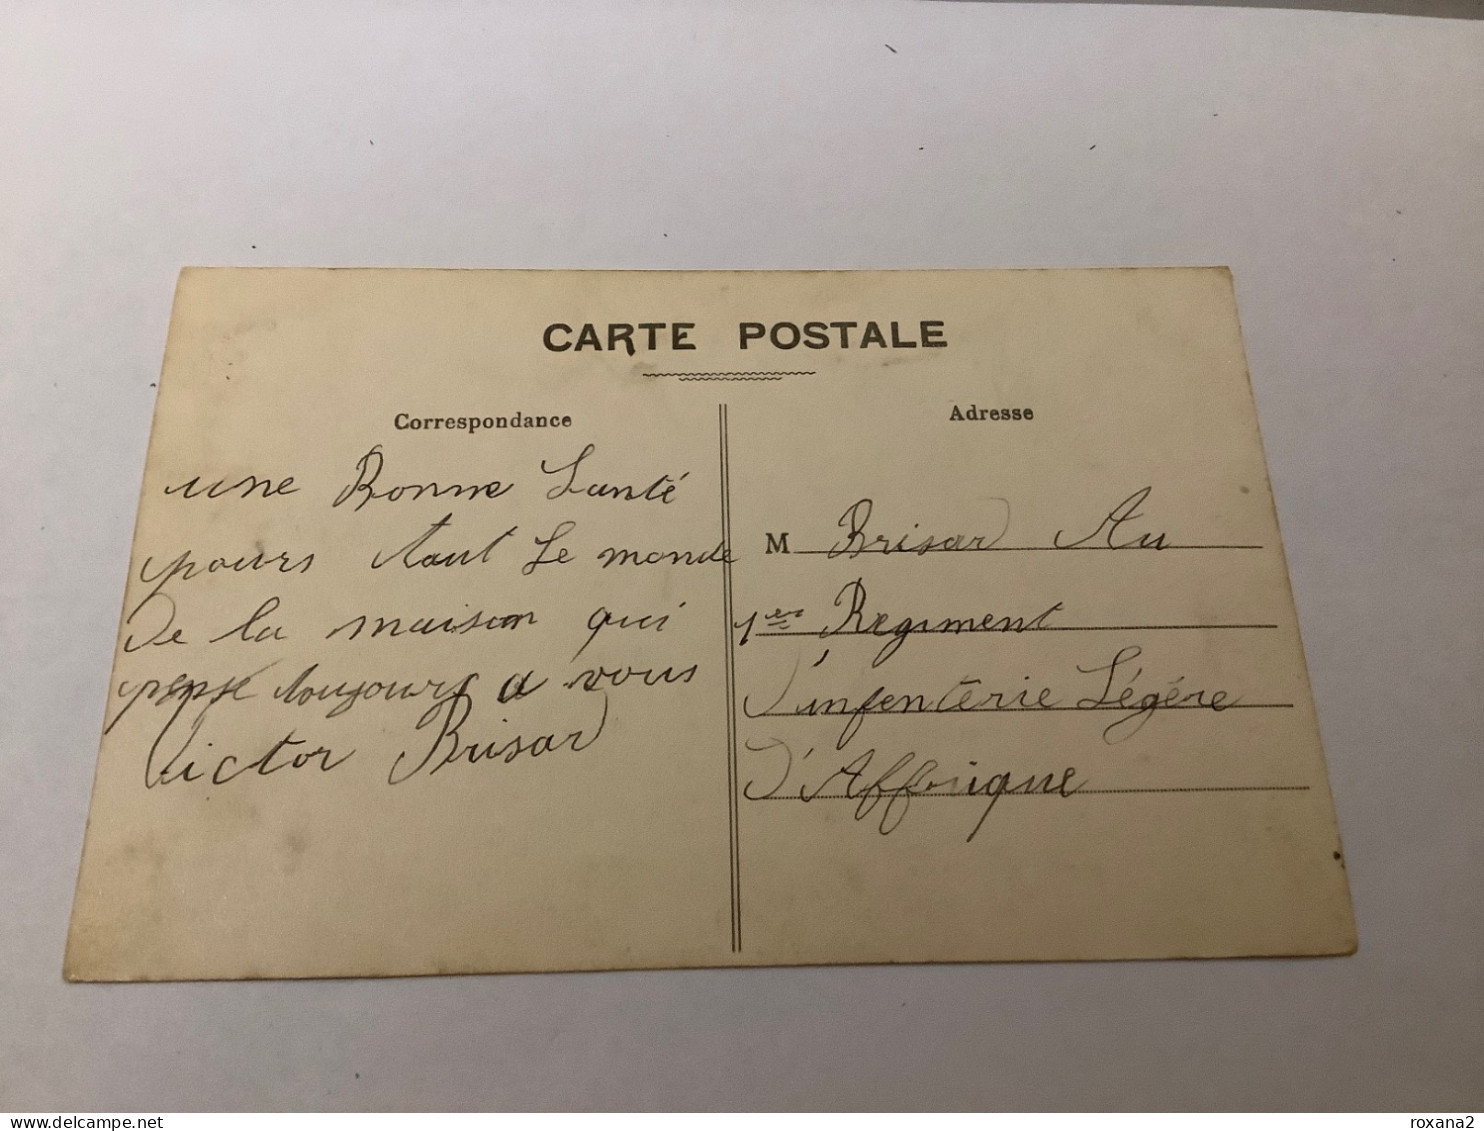 CARTE POSTALE
Correspondance
une Bonne Santé
pours tout Le monde
De la maison qui
pense toujours a vous
Victor Brisard
Adresse
M Brisard Au
1er Regiment
D'infenterie Légére
D'Affrique
roxana2